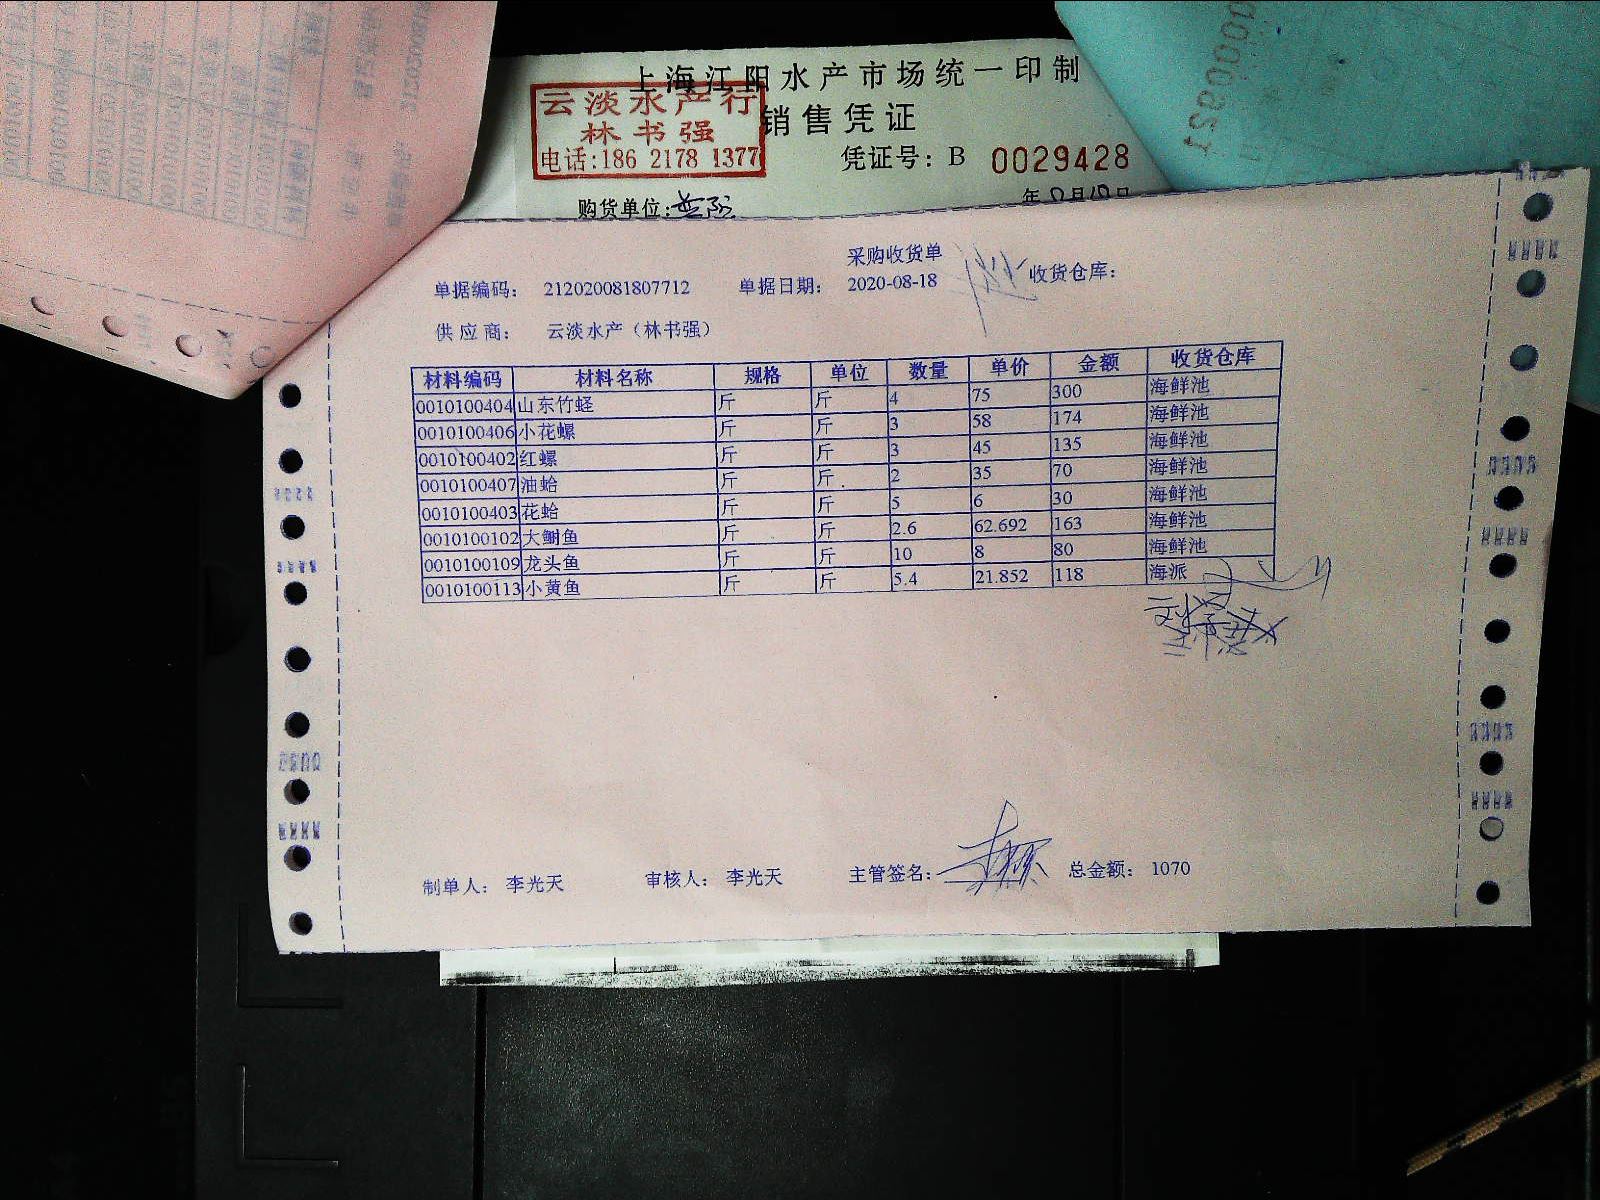 上海江阳水产市场统一印制
云淡水产行
林书强
电话:186 2178 1377
销售凭证
凭证号: B 0029428
购货单位:
年8月18日
采购收货单
单据编码: 212020081807712 单据日期: 2020-08-18 收货仓库:
供应商: 云淡水产（林书强）
材料编码 材料名称 规格 单位 数量 单价 金额 收货仓库
0010100404 山东竹蛏 斤 斤 4 75 300 海鲜池
0010100406 小花螺 斤 斤 3 58 174 海鲜池
0010100402 红螺 斤 斤 3 45 135 海鲜池
0010100407 油蛤 斤 斤 2 35 70 海鲜池
0010100403 花蛤 斤 斤 5 6 30 海鲜池
0010100102 大鲥鱼 斤 斤 2.6 62.692 163 海鲜池
0010100109 龙头鱼 斤 斤 10 8 80 海鲜池
0010100113 小黄鱼 斤 斤 5.4 21.852 118 海派
制单人: 李光天 审核人: 李光天 主管签名: 总金额: 1070